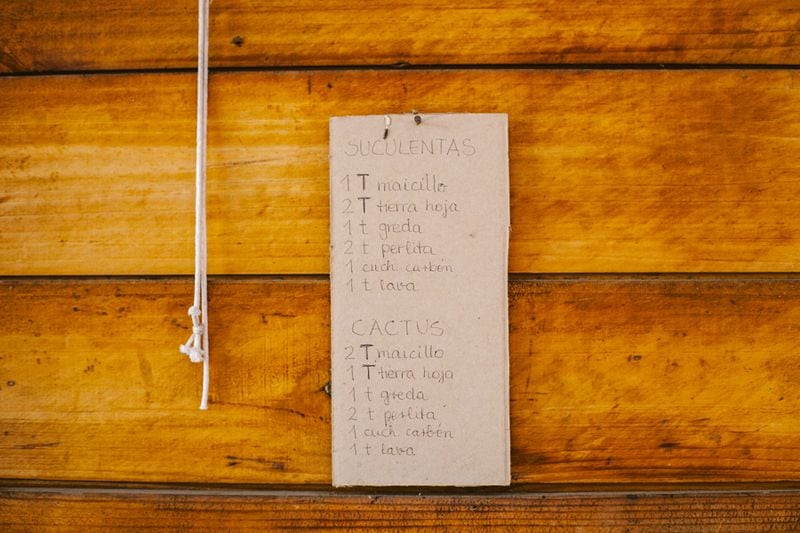 SUCULENTAS
1 T maicillo
2 T tierra hoja
1 t greda
2 t perlita
1 cuch. carbón
1 t lava
CACTUS
2 T maicillo
1 T tierra hoja
1 t greda
2 t perlita
1 cuch. carbón
1 t lava